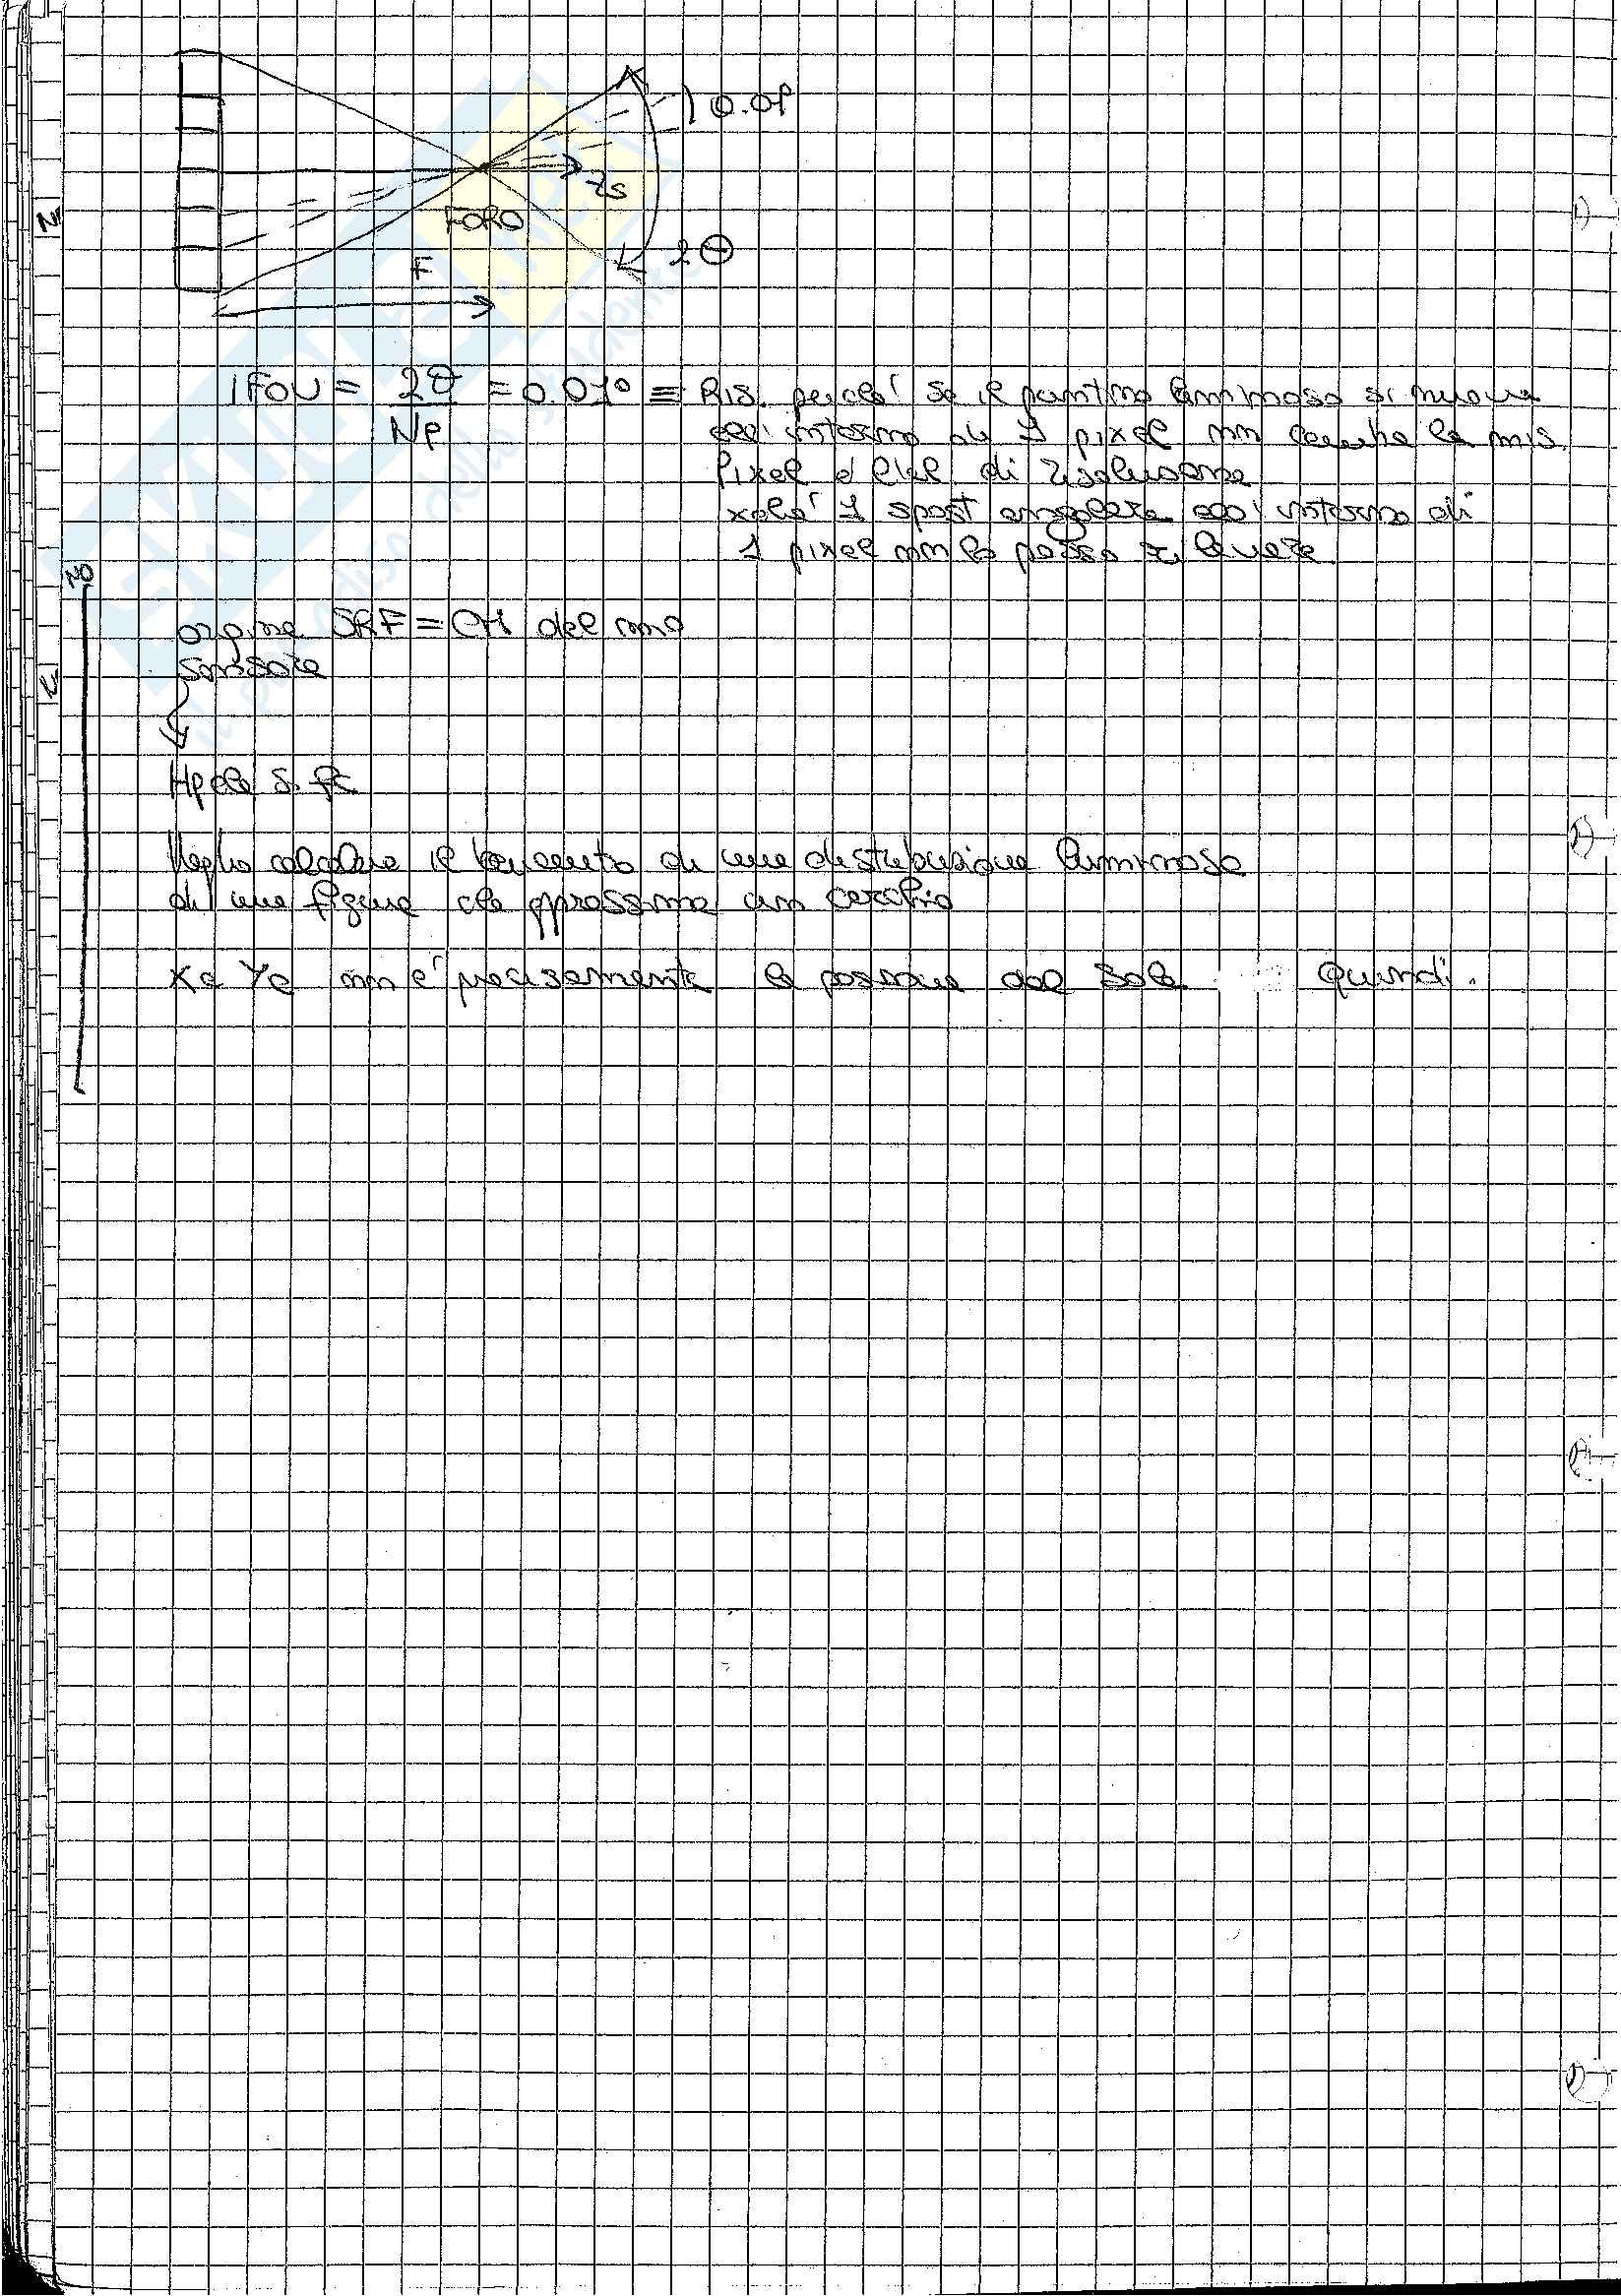 ) 0.01
Zs
FORO
F
2Θ
IFOV = 2θ/Np = 0.01° ≡ RIS. perché se il puntino luminoso si muove
all'interno di 1 pixel nn cambia la mis.
Pixel è l'el. di risoluzione
xché 1 spost angolare all'interno di
1 pixel nn lo posso rilevare
NO
origine SRF = CM del mio
sensore
Hp che si fa
Voglio calcolare il baricentro di una distribuzione luminosa
di una figura che approssima un cerchio
Xc Yc nn è precisamente la posizione del sole quindi.